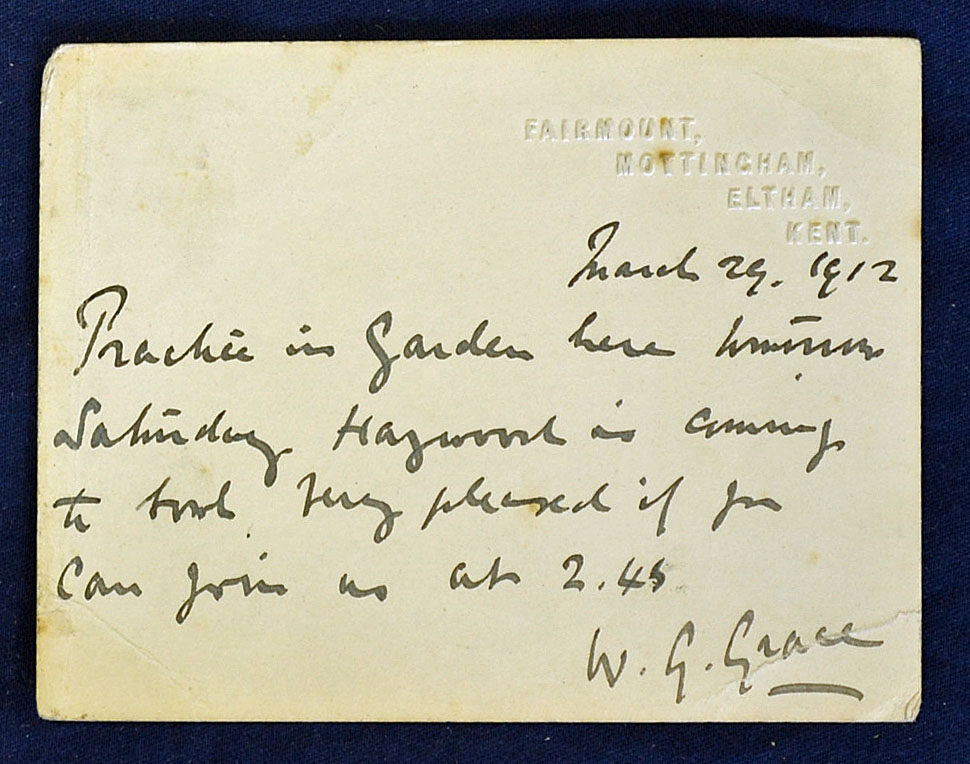 FAIRMOUNT,
MOTTINGHAM,
ELTHAM,
KENT.
March 29. 1912
Practice in Garden here tomorrow
Saturday Haywood is coming
to bowl Very pleased if you
can join us at 2.45
W. G. Grace